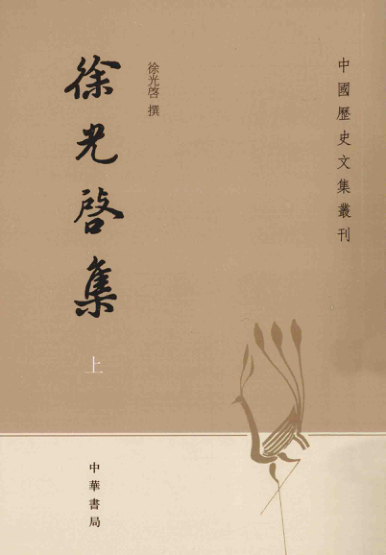 中國歷史文集叢刊
徐光啓 撰
徐光啓集
上
中華書局